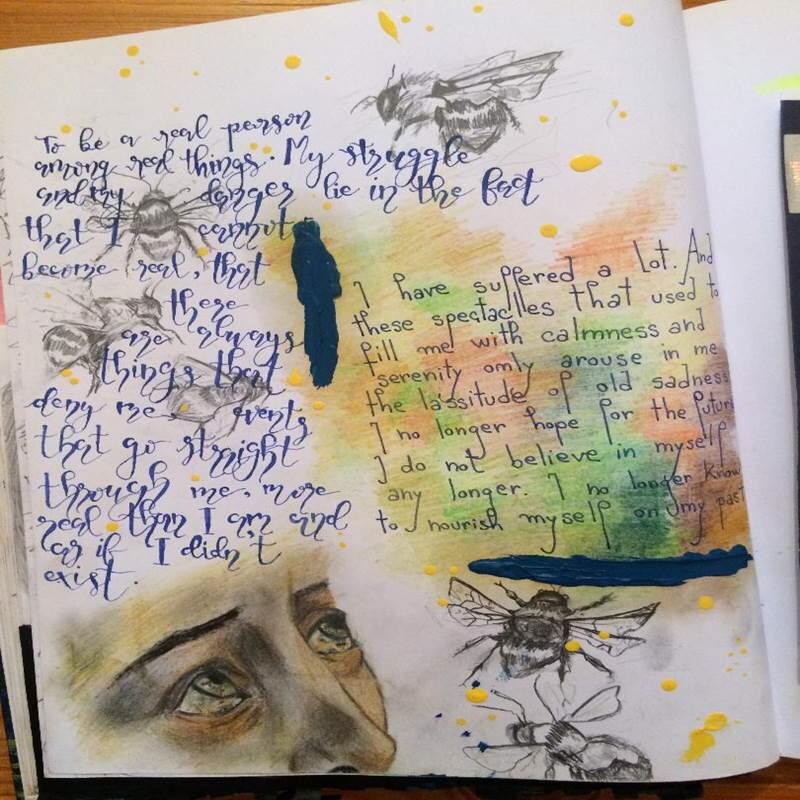 To be a real person
among real things. My struggle
and my danger lie in the fact
that I cannot
become real, that
there
are always
things that
deny me, events
that go straight
through me, more
real than I am and
as if I didn't
exist.
I have suffered a lot. And
these spectaclles that used to
fill me with calmness and
serenity only arouse in me
the lassitude of old sadness
I no longer hope for the future
I do not believe in myself
any longer. I no longer know
to nourish myself on my past